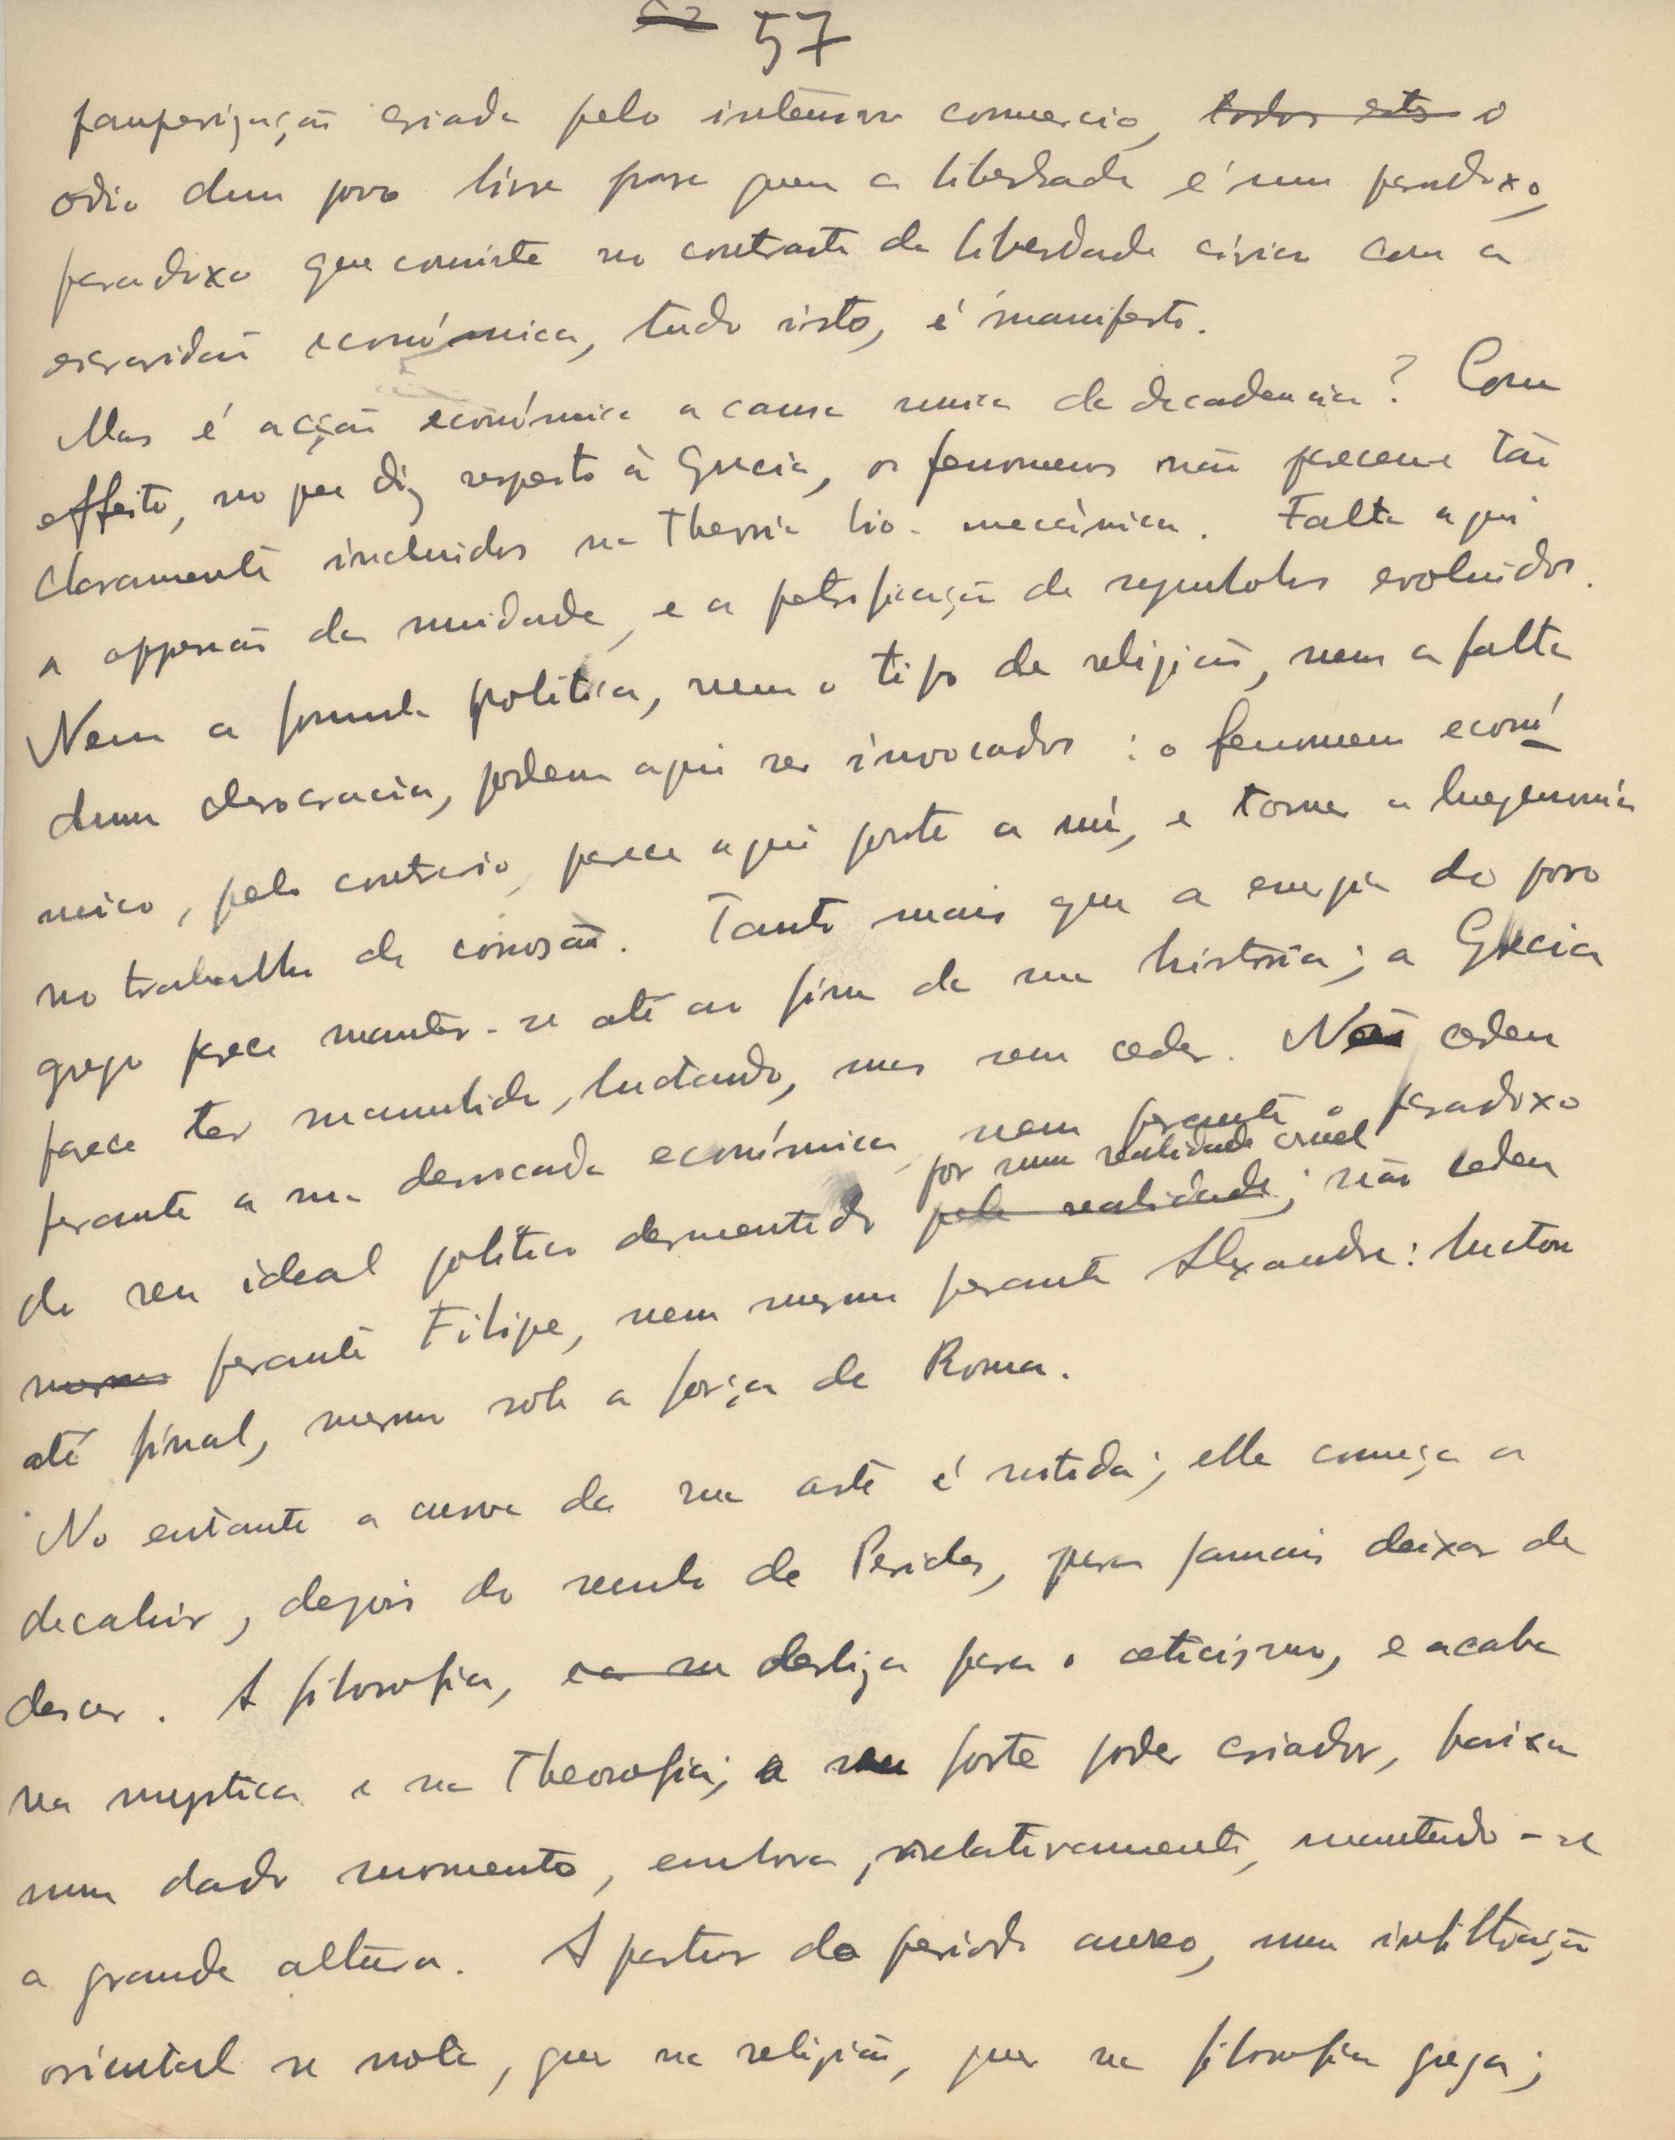 57
pauperização criada pelo intenso commercio, todos estes o
odio dum povo livre para quem a liberdade é um paradoxo,
paradoxo que consiste no contraste da liberdade civica com a
escravidão económica, tudo isto, é manifesto.
Mas é acção económica a causa unica da decadencia? Com
effeito, no que diz respeito à Grecia, os fenomenos não parecem tão
claramente incluidos na theoria bio-mecânica. Falta aqui
a oppressão da unidade, e a petrificação de symbolos evoluidos.
Nem a formula politica, nem o tipo de religião, nem a falta
duma democracia, podem aqui ser invocados: o fenomeno econó
mico, pelo contrario, parece aqui posto a nú, e tomar a hegemonia
no trabalho de corrosão. Tanto mais que a energia do povo
grego parece manter-se até ao fim da sua história; a Grecia
parece ter succumbido, luctando, mas sem ceder. Não cedeu
perante a sua derrocada económica, nem perante o paradoxo
por uma realidade cruel
do seu ideal politico desmentido pela realidade; não cedeu
mesmo perante Filipe, nem mesmo perante Alexandre: luctou
até final, mesmo sob a força de Roma.
No entanto a curva da sua arte é nitida; ella começa a
decahir, depois do seculo de Pericles, para jamais deixar de
descer. A filosofia, desliza para o ceticismo, e acaba
na mystica e na Theosofia; o seu forte poder criador, baixa
num dado momento, embora, relativamente, mantendo-se
a grande altura. A partir do periodo aureo, uma infiltração
oriental se nota, quer na religião, quer na filosofia grega;